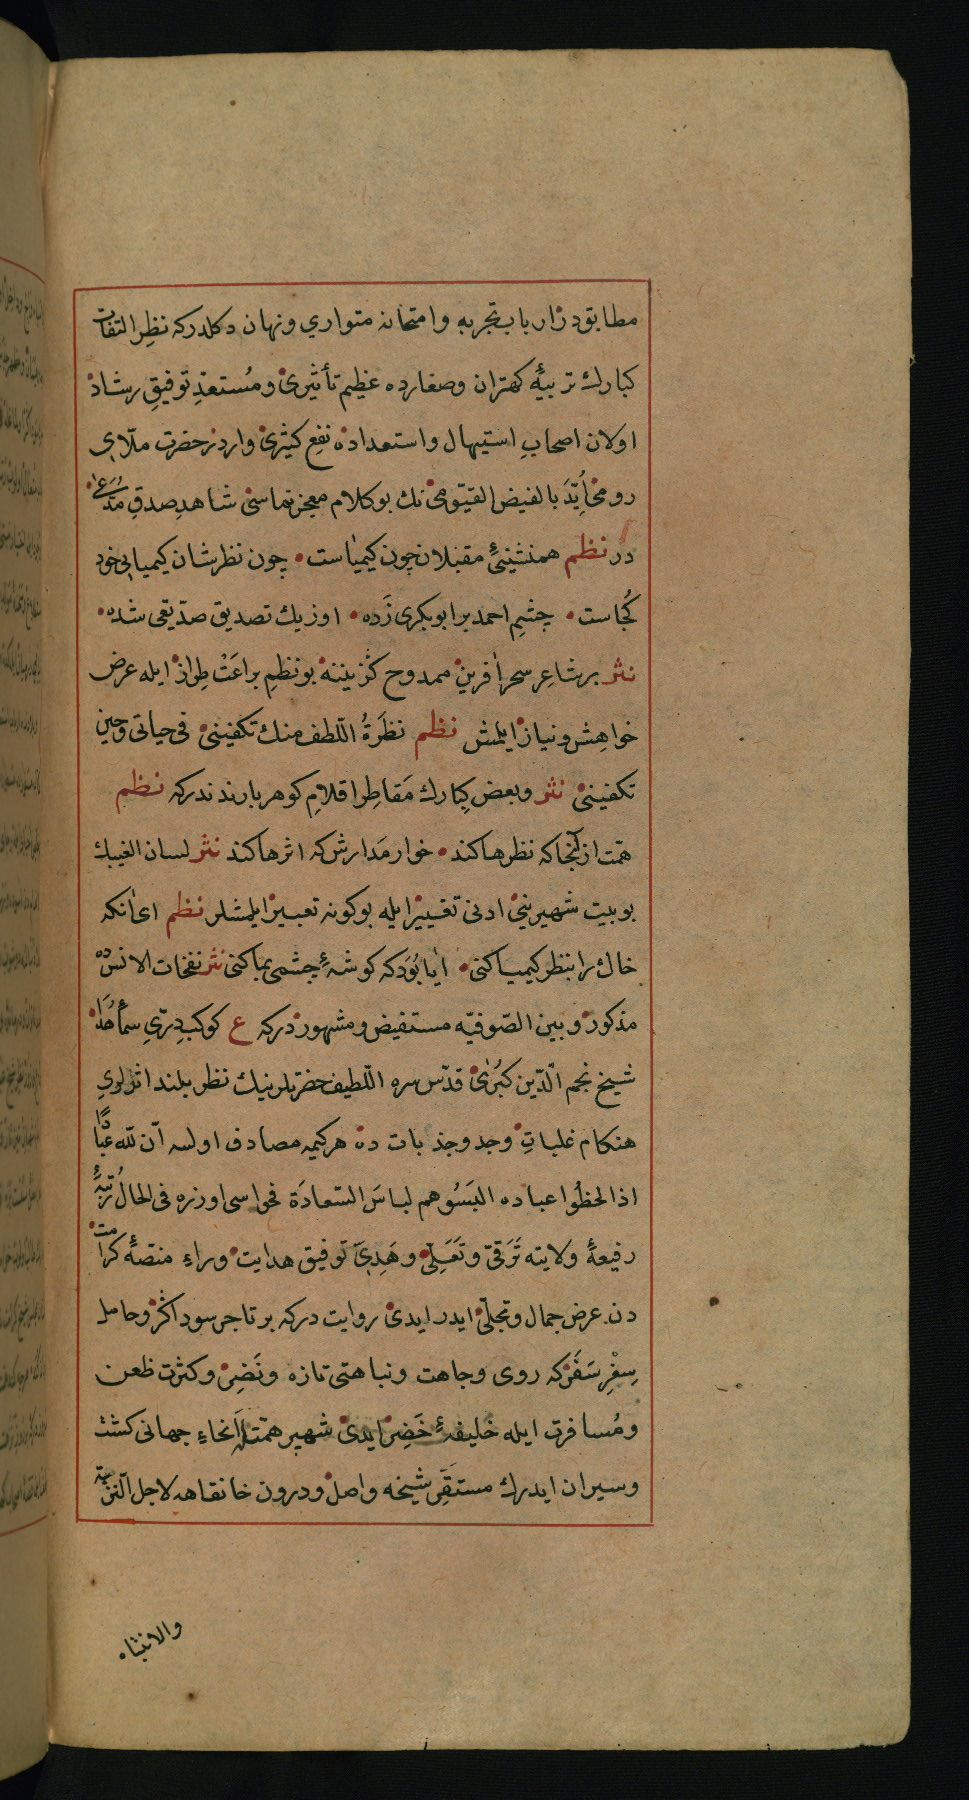 مطابقدر ارباب تجربه وامتحانه متواري ونهان دكلدركه نظرِ التفات
كبارك تربيهٔ كهتران وصغارده عظيم تأثيرى ومُستعدِ توفيقِ رشاد
اولان اصحابِ استيهال واستعداده نفع كثيرى واردر حضرت ملّاى
رومى اُيّدَ بالفيض القيّومى نك بوكلام معجزنماسى شاهدِ صدقِ مدّعا
در نظم همنشينئ مقبلان چون كيمياست • چون نظرشان كيميايى خود
كُجاست • چشمِ احمد بر ابوبكرى زَده • او زيك تصديق صدّيقى شده •
نثر بر شاعر سحرآفرين ممدوح كزيننه بو نظمِ براعَتْ طِراز ايله عرض
خواهش ونياز ايلمش نظم نظرَةُ اللّطف منك تكفينى فى حياتى وحين
تكفينى نثر وبعض كِبارك مَقاطِر اقلامِ كوهربارندندركه نظم
همّت از آنجاكه نظرها كند • خوار مَدارش كه اثرها كند نثر لسان الغيبك
بو بيت شهيرينى ادنى تغيير ايله بو كونه تعبير ايلمشلر نظم اى آنكه
خاك را بنظر كيميا كنى • آيا بُوَد كه كوشهٔ چشمى بما كنى نثر نفحات الانس ده
مذكور وبين الصّوفيّه مستفيض ومشهوردركه ع كوكب درّىِ سماء هُدا
شيخ نجم الدّين كبُرٰى قدّس سره اللّطيف حضرتلرينك نظر بلند اثرلرى
هنكام غلباتِ وجد وجذبات ده هركيمه مصادف اولسه انّ للّه عبادًا
اذا لحظُوا عباده البَسُوهم لباسَ السّعادَة فحواسى اوزره فى الحال رُتبهٔ
رفيعهٔ ولايته تَرَقّى وتَعَلّى وهَدِىّ توفيق هدايت وراءِ منصّهٔ كرامت
دن عرض جمال وتجلّى ايدر ايدى روايت دركه بر تاجر سوداكر وحامل
سِفْرِ سَفَر كه روى وجاهت ونباهتى تازه ونَضِر وكثرت ظعن
ومُسافرت ايله خليفهٔ خَضِر ايدى شهپر همّتله اَنحاءِ جهانى كشت
وسيران ايدرك مستقَرِّ شيخه واصل ودرون خانقاهه لاجل التنزّه
والانتباه